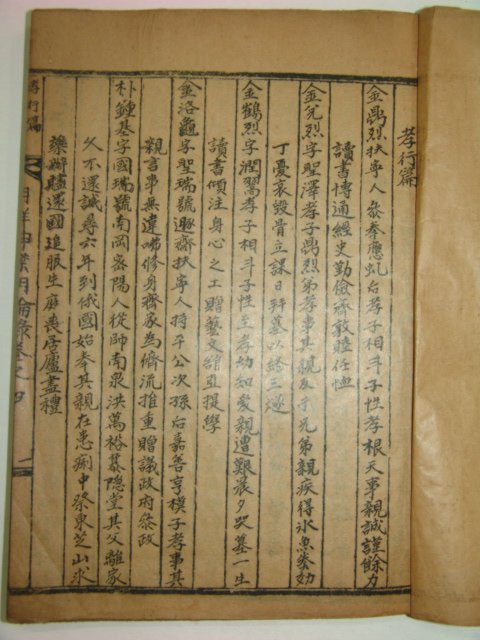 孝行篇
金鼎烈扶寧人叅奉應虬后孝子相斗子性孝根天事親誠謹餘力
讀書博通經史勤儉齊敦睦任恤
金允烈字聖澤孝子鼎烈弟孝事其親友于兄弟親疾得氷魚叅効
丁憂哀毁骨立課日拜墓以終三㴚
金鶴烈字潤翯孝子相斗子性至孝幼如愛親遭艱晨夕哭墓一生
讀書傾注身心之工贈藝文舘直提學
金洛龜字聖瑞號遯齋扶寧人持平公次孫后嘉善亨模子孝事其
親言事無違咈修身齊家為儕流推重贈議政府叅政
朴鍾基字國瑞號南岡密陽人從師南泉洪萬裕慕隐堂其父離家
久不還誠尋六年到俄國始奉其親在患痢中祭東芝山求
藥辦贐還國追服生庭喪居廬盡禮
孝行篇
明倫錄卷之四